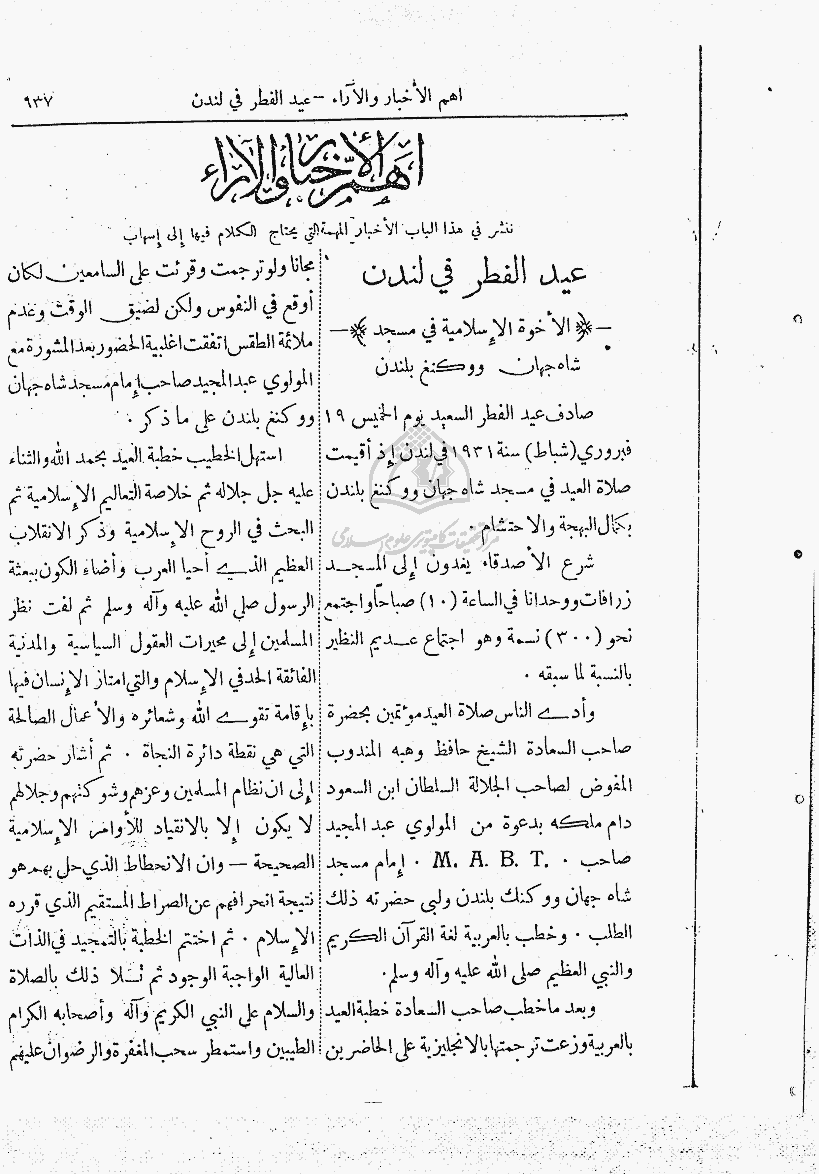 اهم الأخبار والآراء — عيد الفطر في لندن
٩٣٧
اهم الأخبار والآراء
ننشر في هذا الباب الأخبار المهمة التي يحتاج الكلام فيها إلى إسهاب
عيد الفطر في لندن
— ﴿ الأخوة الإسلامية في مسجد ﴾ —
شاه جهان ووكنغ بلندن
صادف عيد الفطر السعيد يوم الخميس ١٩
فبروري (شباط) سنة ١٩٣١ في لندن إذ أقيمت
صلاة العيد في مسجد شاه جهان ووكنغ بلندن
بكمال البهجة والاحتشام .
شرع الأصدقاء يغدون إلى المسجد
زرافات ووحدانا في الساعة (١٠) صباحاً واجتمع
نحو (٣٠٠) نسمة وهو اجتماع عديم النظير
بالنسبة لما سبقه .
وأدى الناس صلاة العيد مؤتمين بحضرة
صاحب السعادة الشيخ حافظ وهبه المندوب
المفوض لصاحب الجلالة السلطان ابن السعود
دام ملكه بدعوة من المولوي عبد المجيد
صاحب . M. A. B. T. إمام مسجد
شاه جهان ووكنك بلندن ولبى حضرته ذلك
الطلب . وخطب بالعربية لغة القرآن الكريم
والنبي العظيم صلى الله عليه وآله وسلم.
وبعد ما خطب صاحب السعادة خطبة العيد
بالعربية وزعت ترجمتها بالانجليزية على الحاضرين
مجانا ولو ترجمت وقرئت على السامعين لكان
أوقع في النفوس ولكن لضيق الوقت وعدم
ملائمة الطقس اتفقت اغلبية الحضور بعد المشورة مع
المولوي عبد المجيد صاحب إمام مسجد شاه جهان
ووكنغ بلندن على ما ذكر .
استهل الخطيب خطبة العيد بحمد الله والثناء
عليه جل جلاله ثم خلاصة التعاليم الإسلامية ثم
البحث في الروح الإسلامية وذكر الانقلاب
العظيم الذي أحيا العرب وأضاء الكون ببعثة
الرسول صلى الله عليه وآله وسلم ثم لفت نظر
المسلمين إلى محيرات العقول السياسية والمدنية
الفائقة الحد في الإسلام والتي امتاز الإنسان فيها
بإقامة تقوى الله وشعائره والأعمال الصالحة
التي هي نقطة دائرة النجاة . ثم أشار حضرته
إلى ان نظام المسلمين وعزهم وشوكتهم وجلالهم
لا يكون إلا بالانقياد للأوامر الإسلامية
الصحيحة — وان الانحطاط الذي حل بهم هو
نتيجة انحرافهم عن الصراط المستقيم الذي قرره
الإسلام . ثم اختتم الخطبة بالتمجيد في الذات
العالية الواجبة الوجود ثم تلا ذلك بالصلاة
والسلام على النبي الكريم وآله وأصحابه الكرام
الطيبين واستمطر سحب المغفرة والرضوان عليهم
مرکز تحقیقات کامپیوتری علوم اسلامی